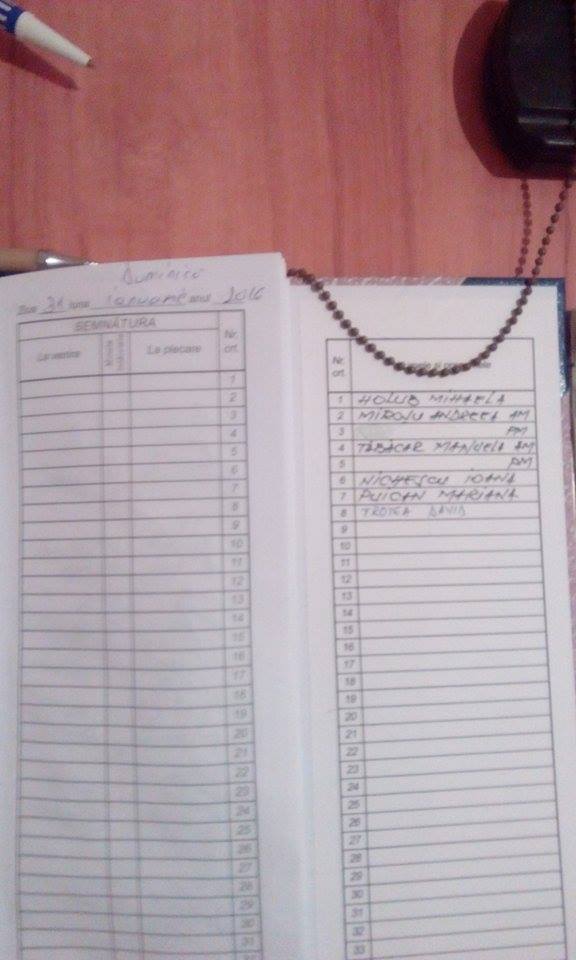 Duminică
Ziua 31 luna ianuarie anul 2016
SEMNĂTURA
La venire
La plecare
Nr. crt.
1
2
3
4
5
6
7
8
9
10
11
12
13
14
15
16
17
18
19
20
21
22
23
24
25
26
27
28
29
30
31
Nr. crt.
1 HOLUB MIHAELA
2 MIROȘU ANDREEA AM
3 PM
4 TĂBĂCAR MANUELA AM
5 PM
6 NICHESCU IOANA
7 PUICAN MARIANA
8 TROTEA DAVID
9
10
11
12
13
14
15
16
17
18
19
20
21
22
23
24
25
26
27
28
29
30
31
32
33